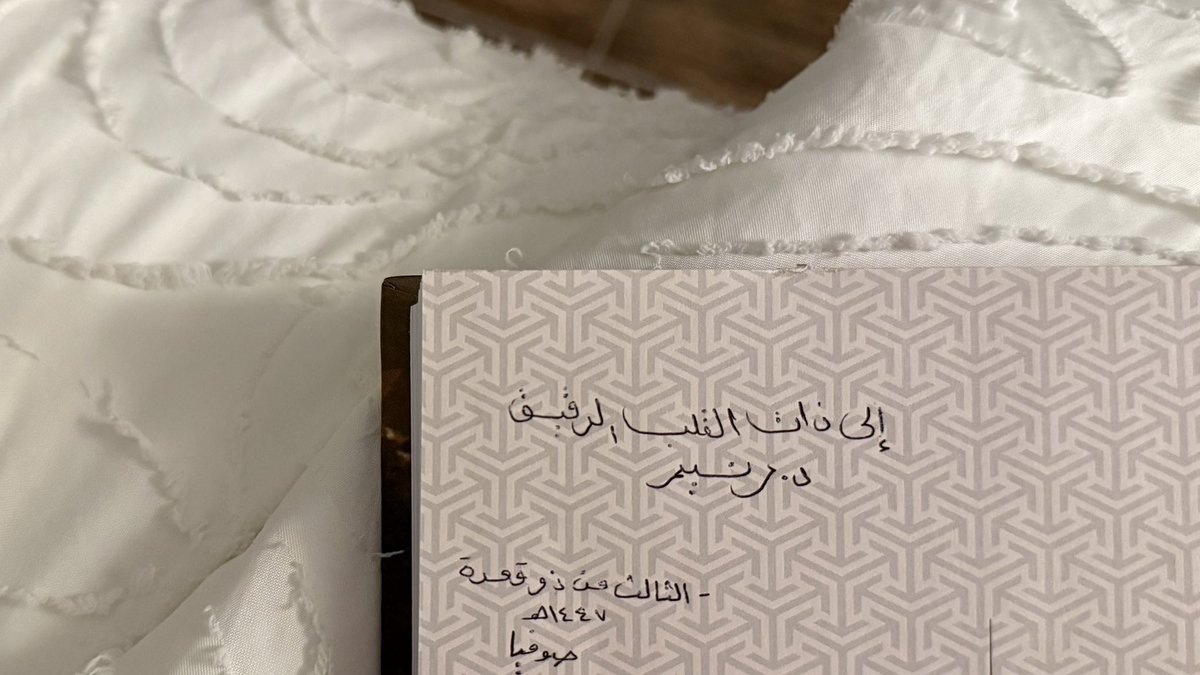 إلى ذات القلب الرقيق
د.
- الثالث من ذو قعدة
١٤٤٧هـ
صوفيا